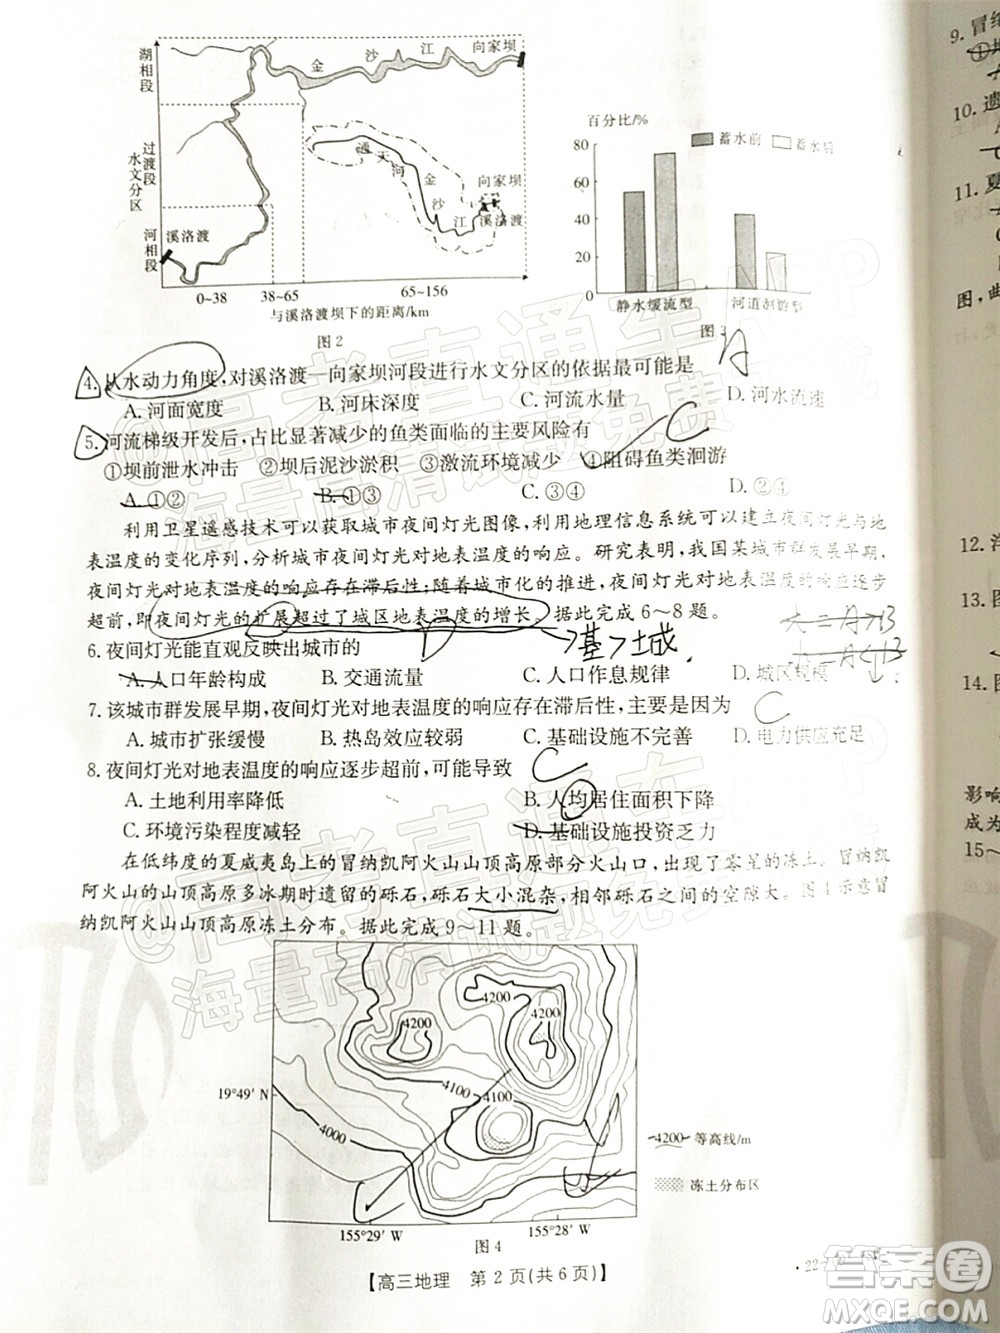 湖相段
过渡段
水文分区
河相段
金 沙 江
向家坝
通天河
金沙江
向家坝
溪洛渡
溪洛渡
0~38 38~65 65~156
与溪洛渡坝下的距离/km
图2
百分比/%
蓄水前 蓄水后
80
60
40
20
0
静水缓流型 河道洄游型
图3
A
4. 从水动力角度,对溪洛渡—向家坝河段进行水文分区的依据最可能是
A. 河面宽度 B. 河床深度 C. 河流水量 D. 河水流速
5. 河流梯级开发后,占比显著减少的鱼类面临的主要风险有 C
①坝前泄水冲击 ②坝后泥沙淤积 ③激流环境减少 ④阻碍鱼类洄游
A. ①② B. ①③ C. ③④ D. ②④
利用卫星遥感技术可以获取城市夜间灯光图像,利用地理信息系统可以建立夜间灯光与地
表温度的变化序列,分析城市夜间灯光对地表温度的响应。研究表明,我国某城市群发展早期,
夜间灯光对地表温度的响应存在滞后性;随着城市化的推进,夜间灯光对地表温度的响应逐步
超前,即夜间灯光的扩展超过了城区地表温度的增长。据此完成6~8题。
基>城
6. 夜间灯光能直观反映出城市的 D
A. 人口年龄构成 B. 交通流量 C. 人口作息规律 D. 城区规模
7. 该城市群发展早期,夜间灯光对地表温度的响应存在滞后性,主要是因为 C
A. 城市扩张缓慢 B. 热岛效应较弱 C. 基础设施不完善 D. 电力供应充足
8. 夜间灯光对地表温度的响应逐步超前,可能导致 C
A. 土地利用率降低 B. 人均居住面积下降
C. 环境污染程度减轻 D. 基础设施投资乏力
在低纬度的夏威夷岛上的冒纳凯阿火山山顶高原部分火山口,出现了零星的冻土。冒纳凯
阿火山的山顶高原多冰期时遗留的砾石,砾石大小混杂,相邻砾石之间的空隙大。图4示意冒
纳凯阿火山山顶高原冻土分布。据此完成9~11题。
4200
4200
4200
19°49′ N
4100
4100
4000
4200 等高线/m
冻土分布区
155°29′ W 155°28′ W
图4
【高三地理 第2页(共6页)】
9. 冒纳
10. 遗
11. 夏
图,
12.
13. 图
14. 图
影响
成为
15~
@高考直通车APP
海量高清试题免费下载
@高考直通车APP
海量高清试题免费
答案圈
MXQE.COM